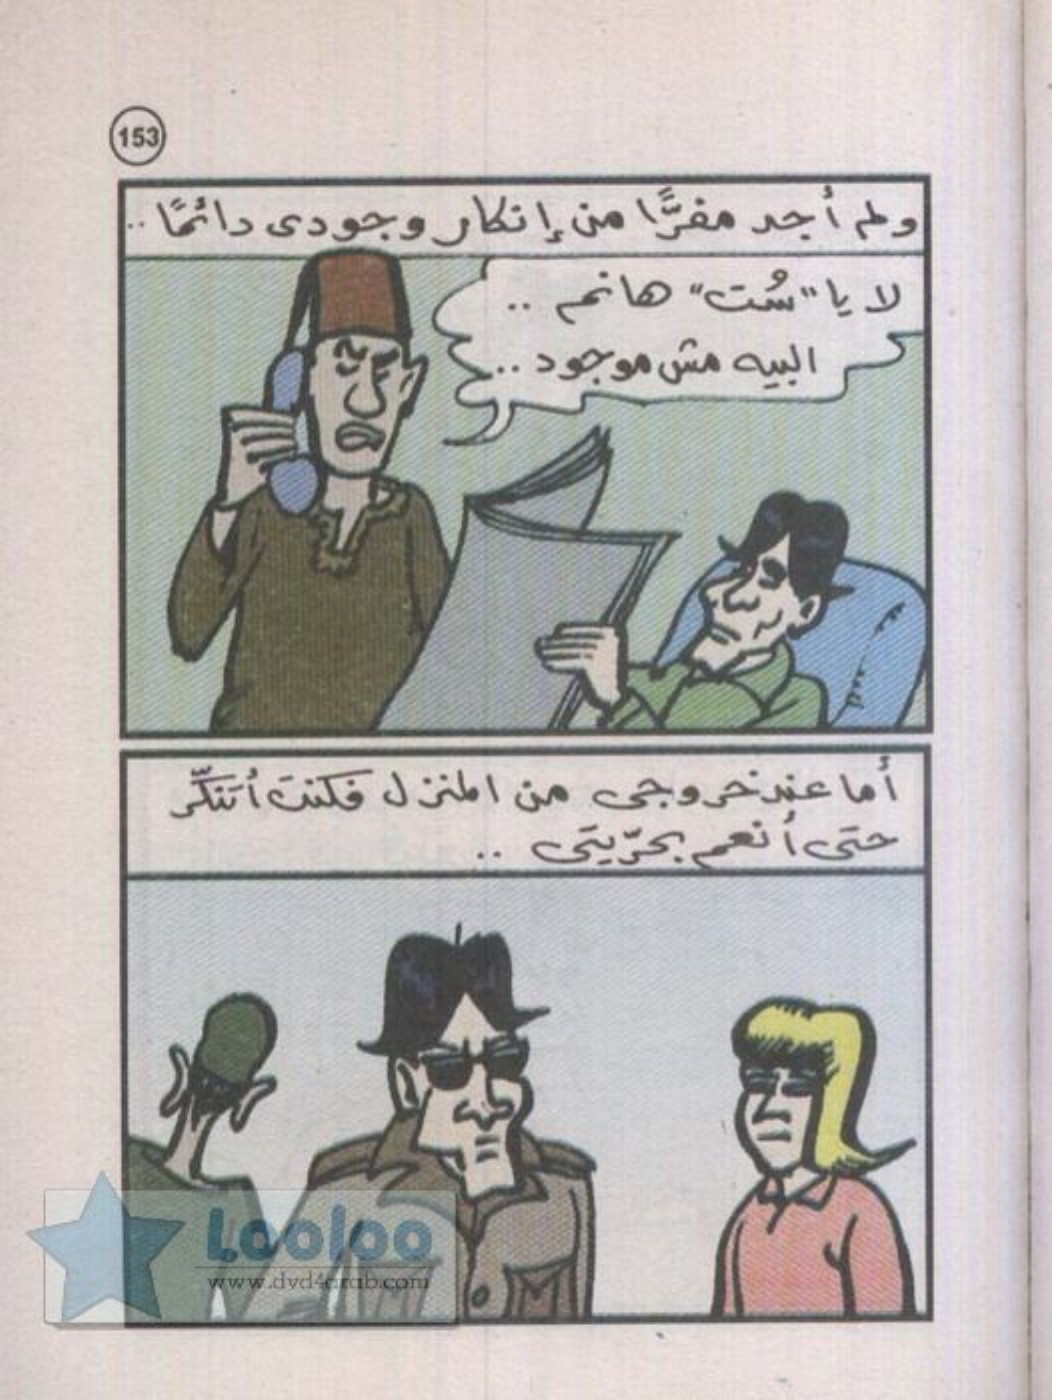 153
ولم أجد مفرًّا من إنكار وجودى دائمًا..
لا يا "سُت" هانم ..
البيه مش موجود ..
أما عند خروجى من المنزل فكنت أتنكّر
حتى أنعم بحرّيتى ..
Looloo
www.dvd4arab.com